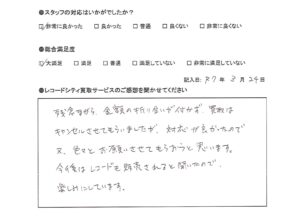 ●スタッフの対応はいかがでしたか?
☑非常に良かった □良かった □普通 □良くない □非常に良くない
●総合満足度
☑大満足 □満足 □普通 □満足していない □非常に満足していない
記入日: R7年 2月 24日
●レコードシティ買取サービスのご感想を聞かせてください
残念ながら、金額の折り合いが付かず、買取は
キャンセルさせてもらいましたが、対応が良かったので
又、色々とお願いさせてもらおうと思います。
今後はレコードも販売されると聞いたので、
楽しみにしています。